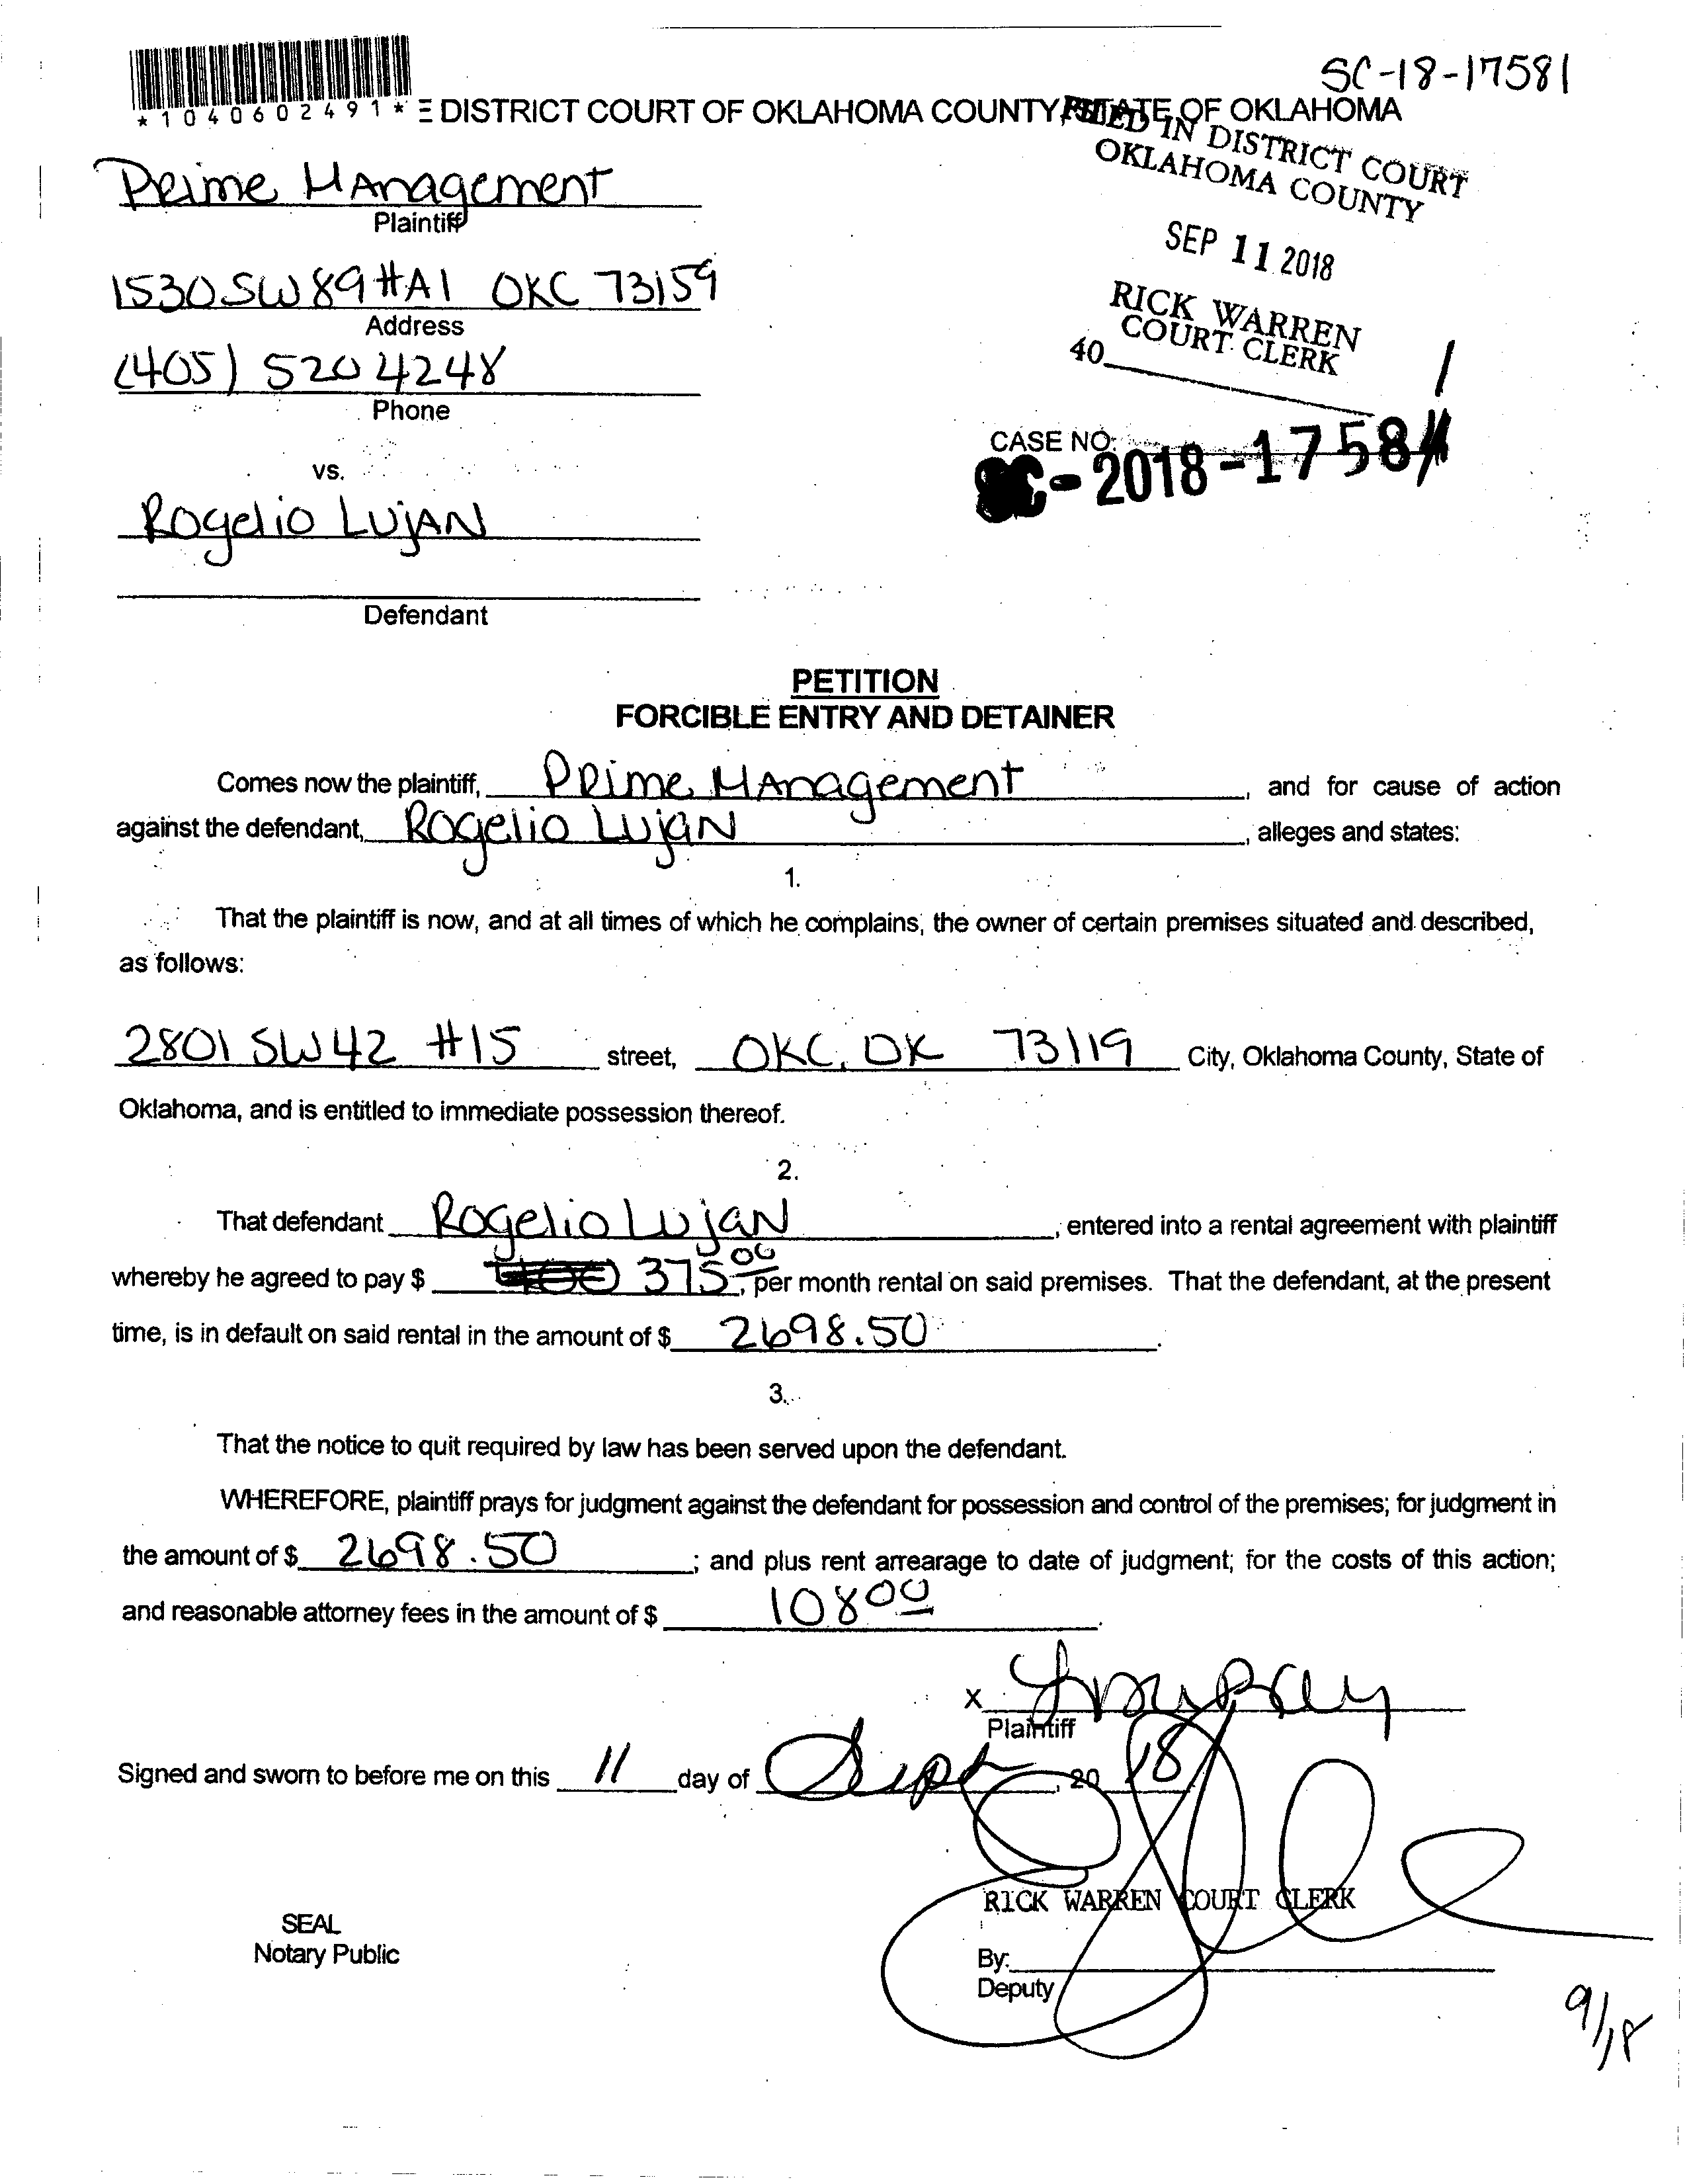 SC-18-17581
*1040602491* E DISTRICT COURT OF OKLAHOMA COUNTY, STATE OF OKLAHOMA
FILED IN DISTRICT COURT
OKLAHOMA COUNTY
Prime Management
Plaintiff
SEP 11 2018
1530 SW 89 #A1 OKC 73159
Address
RICK WARREN
COURT CLERK
40
(405) 520 4248
Phone
CASE NO.
SC-2018-17581
vs.
Rogelio Lujan
Defendant
PETITION
FORCIBLE ENTRY AND DETAINER
Comes now the plaintiff, Prime Management, and for cause of action
against the defendant, Rogelio Lujan, alleges and states:
1.
That the plaintiff is now, and at all times of which he complains, the owner of certain premises situated and described,
as follows:
2801 SW 42 #15 street, OKC, OK 73119 City, Oklahoma County, State of
Oklahoma, and is entitled to immediate possession thereof.
2.
That defendant Rogelio Lujan, entered into a rental agreement with plaintiff
whereby he agreed to pay $ 375.00, per month rental on said premises. That the defendant, at the present
time, is in default on said rental in the amount of $ 2698.50.
3.
That the notice to quit required by law has been served upon the defendant.
WHEREFORE, plaintiff prays for judgment against the defendant for possession and control of the premises; for judgment in
the amount of $ 2698.50; and plus rent arrearage to date of judgment; for the costs of this action;
and reasonable attorney fees in the amount of $ 108 00.
X
Plaintiff
Signed and sworn to before me on this 11 day of Sept, 20 18
RICK WARREN COURT CLERK
SEAL
Notary Public
By:
Deputy
9/18